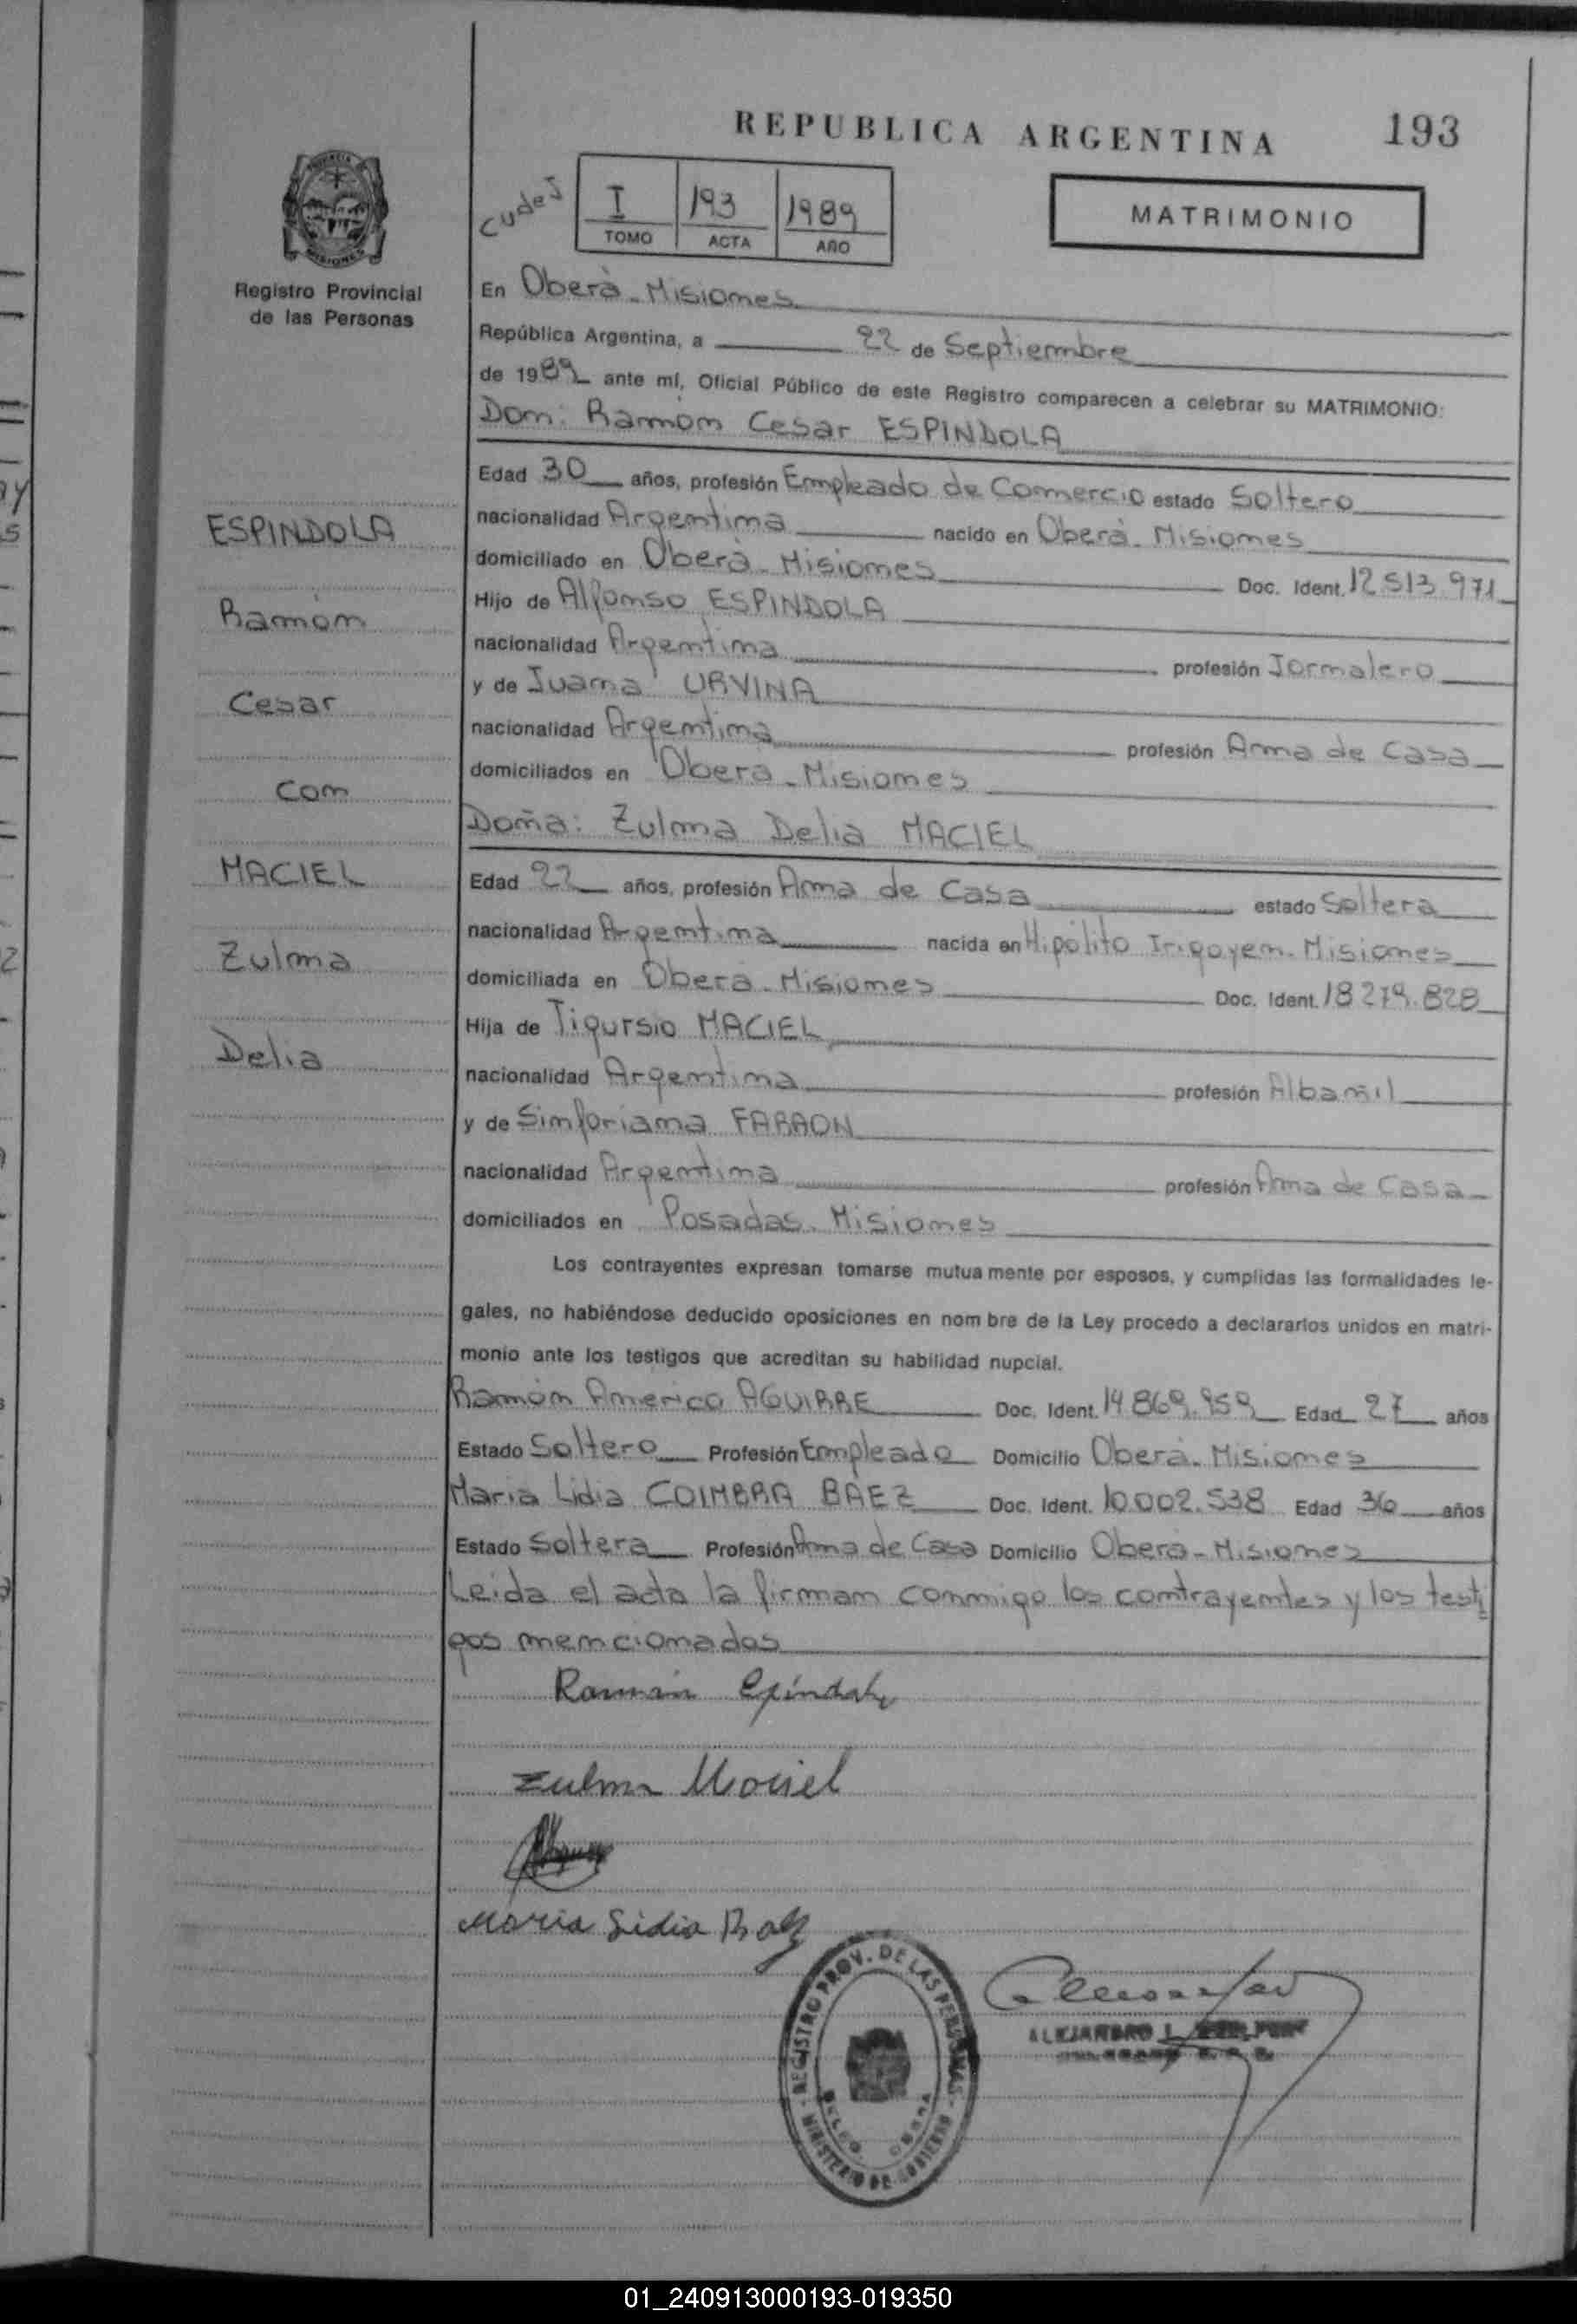 REPUBLICA ARGENTINA 193
I 193 1989
TOMO ACTA AÑO
MATRIMONIO
PROVINCIA
MISIONES
Registro Provincial
de las Personas
En Oberà - Misiones
República Argentina, a 22 de Septiembre
de 1989 ante mí, Oficial Público de este Registro comparecen a celebrar su MATRIMONIO:
Don: Ramón Cesar ESPINDOLA
Edad 30 años, profesión Empleado de Comercio estado Soltero
nacionalidad Argentina nacido en Oberà - Misiones
domiciliado en Oberà - Misiones Doc. Ident. 12.513.971
Hijo de Alfonso ESPINDOLA
nacionalidad Argentina profesión Jornalero
y de Juana URVINA
nacionalidad Argentina profesión Ama de Casa
domiciliados en Oberà - Misiones
Doña: Zulma Delia MACIEL
Edad 22 años, profesión Ama de Casa estado Soltera
nacionalidad Argentina nacida en Hipólito Irigoyen - Misiones
domiciliada en Oberà - Misiones Doc. Ident. 18.279.828
Hija de Tigursio MACIEL
nacionalidad Argentina profesión Albañil
y de Simforiana FARAON
nacionalidad Argentina profesión Ama de Casa
domiciliados en Posadas - Misiones
ESPINDOLA
Ramón
Cesar
Con
MACIEL
Zulma
Delia
Los contrayentes expresan tomarse mutuamente por esposos, y cumplidas las formalidades le-
gales, no habiéndose deducido oposiciones en nombre de la Ley procedo a declararlos unidos en matri-
monio ante los testigos que acreditan su habilidad nupcial.
Ramón Americo AGUIRRE Doc. Ident. 14.869.959 Edad 27 años
Estado Soltero Profesión Empleado Domicilio Oberà - Misiones
Maria Lidia COIMBRA BAEZ Doc. Ident. 10.002.538 Edad 36 años
Estado Soltera Profesión Ama de Casa Domicilio Oberà - Misiones
Leida el acta la firman conmigo los contrayentes y los testi
gos mencionados
Ramón Espíndola
Zulma Maciel
Maria Lidia Baez
REGISTRO PROV. DE LAS PERSONAS
MINISTERIO DE GOBIERNO
ALEJANDRO
01_240913000193-019350